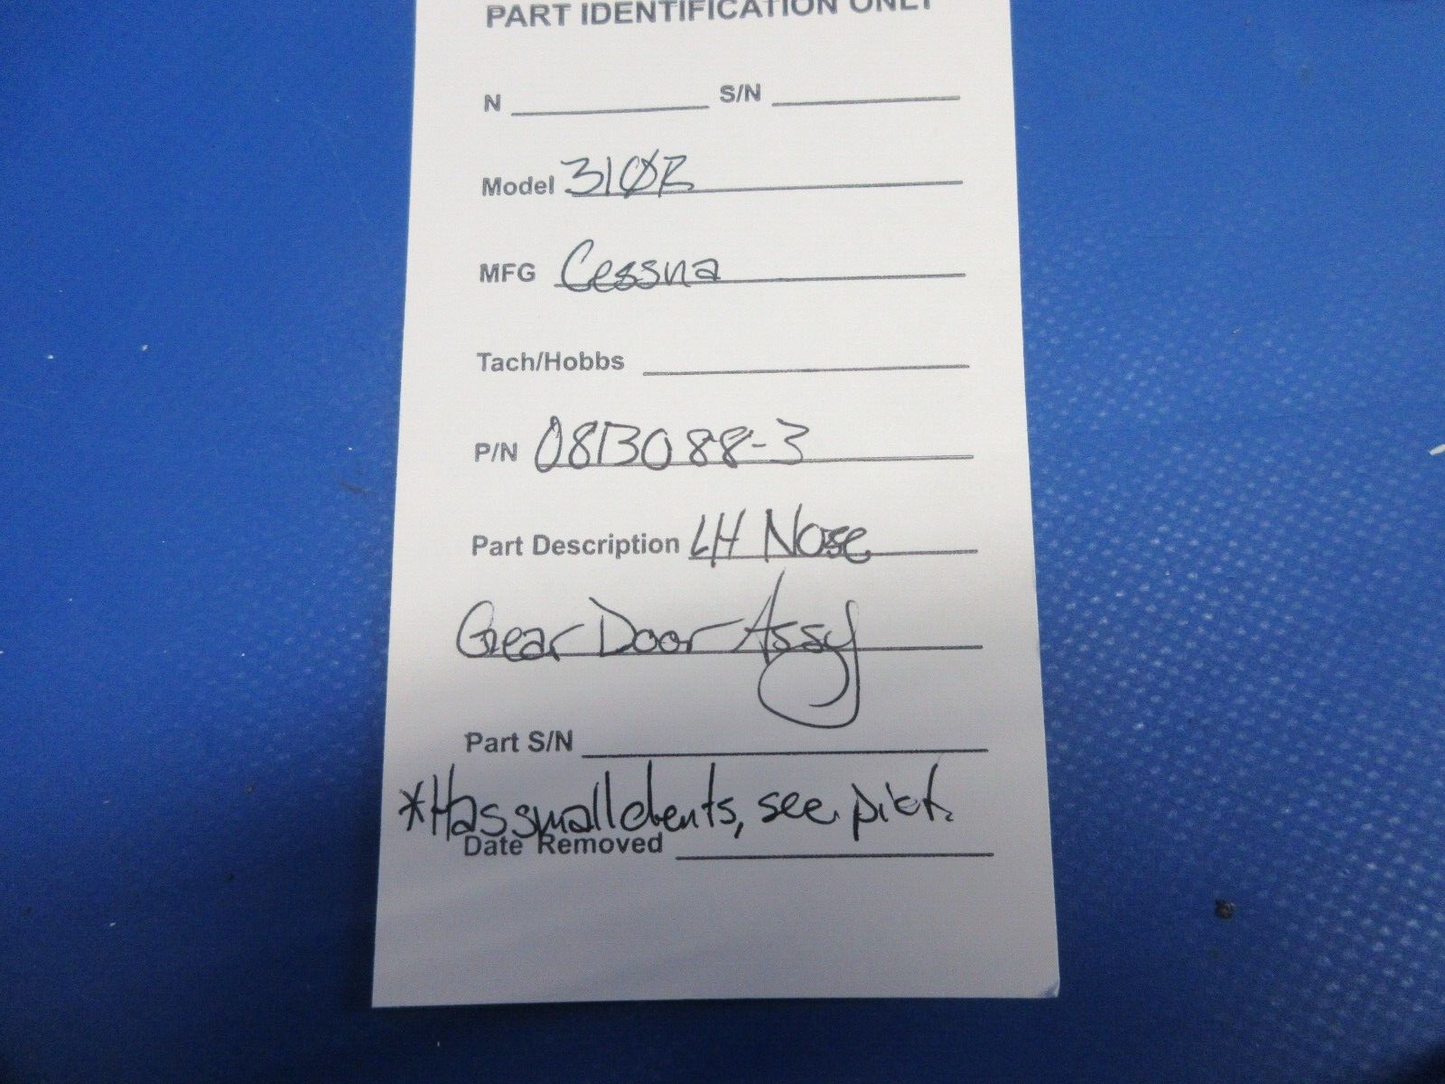 PART IDENTIFICATION ONLY
N S/N
Model 310R
MFG Cessna
Tach/Hobbs
P/N 0813088-3
Part Description LH Nose
Gear Door Assy
Part S/N
*Has small dents, see pict.
Date Removed